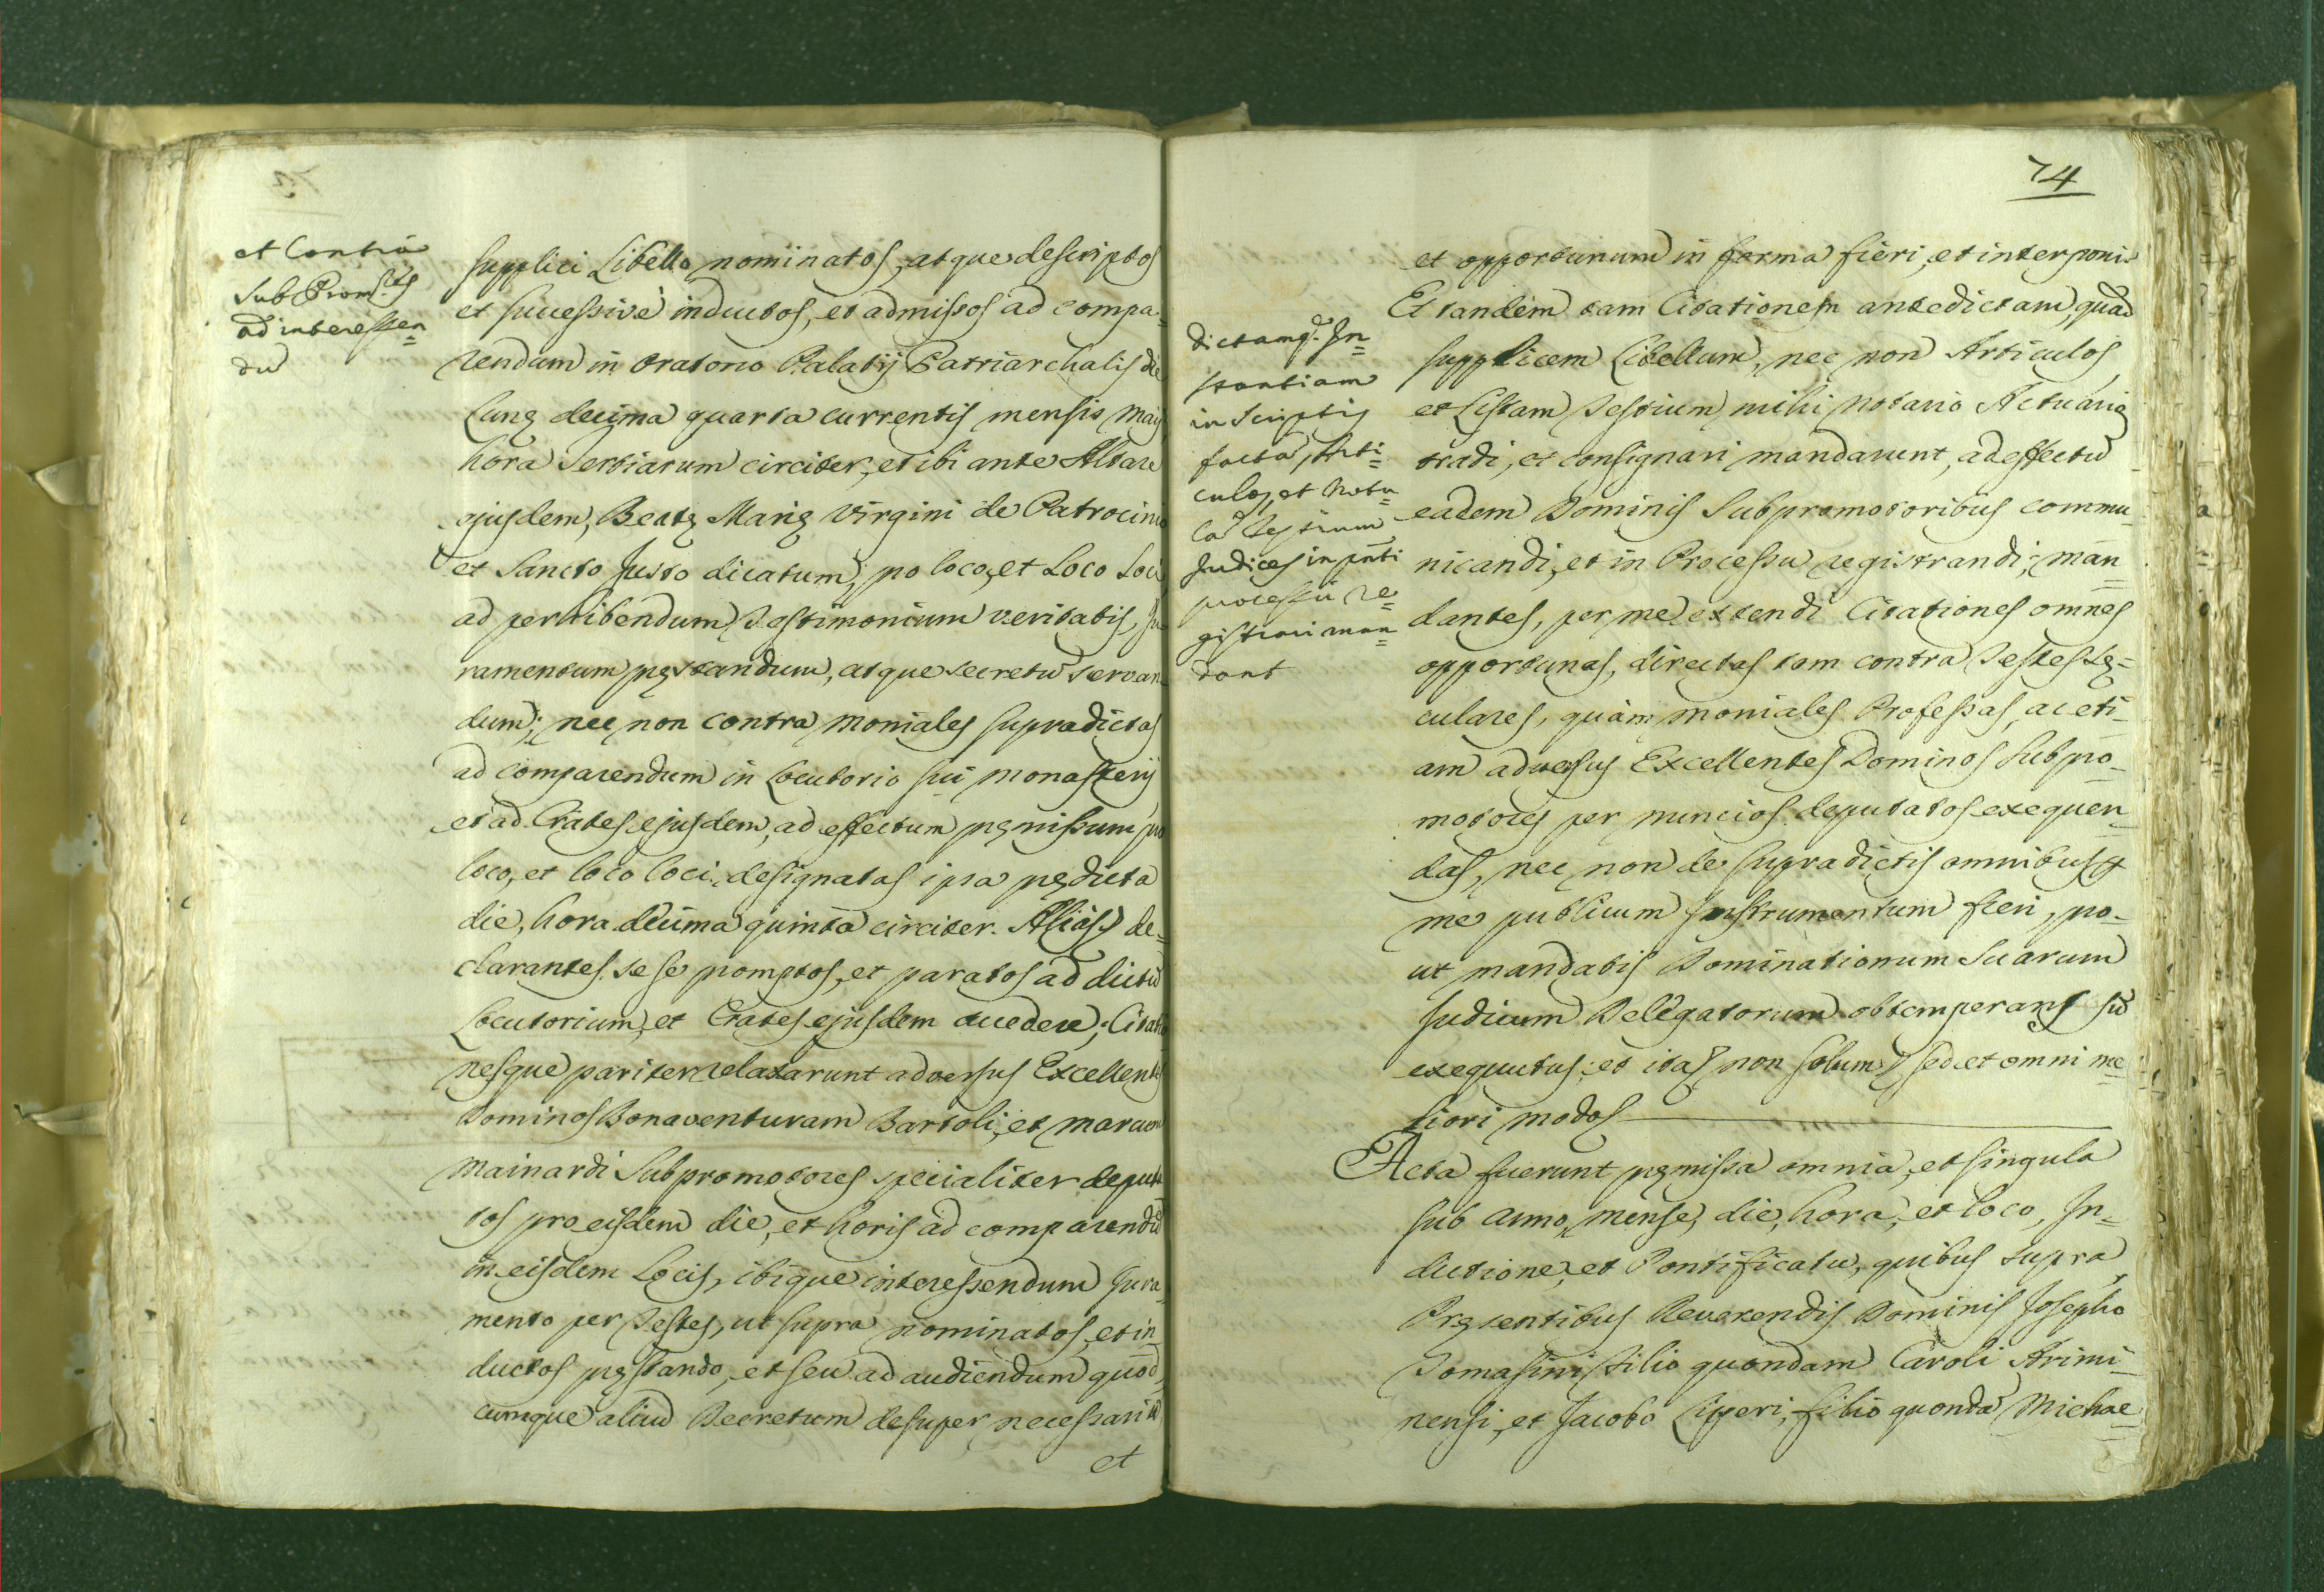 et Contra
Sub Prom.res
ad interessen=
dũ
supplici Libello nominatos, atque descriptos
et successivè inductos, et admissos ad compa=
rendum in Oratorio Palatij Patriarchalis die
Lunę decima quarta currentis mensis Maij
hora Tertiarum circiter, et ibi ante Altare
ejusdem, Beatę Marię Virgini de Patrocinio
et Sancto Justo dicatum, pro loco, et Loco Loci
ad perhibendum Testimonium veritatis, Ju=
ramentum pręstandum, atque secretũ servan=
dum; nec non contra Moniales supradictas
ad comparendum in Locutorio sui Monasterij
et ad Crates ejusdem, ad effectum pręmissum pro
loco, et loco loci designatas ipsa prędicta
die, hora decima quinta circiter. Aliàs) de=
clarantes se se promptos, et paratos ad dictũ
Locutorium, et Crates ejusdem accedere; Citatio
nesque pariter relaxarunt adversus Excellentes
Dominos Bonaventuram Bartoli, et Marcum
Mainardi Subpromotores specialiter deputa
tos pro eisdem die, et horis ad comparendũ
in eisdem Locis, ibique interessendum Jura=
mento per Testes, ut supra nominatos, et in=
ductos pręstando, et seu ad audiendum quod=
cumque aliud Decretum desuper necessariũ
et
74
dictamq. In=
stantiam
in Scriptis
facta, Arti=
culos, et Notu=
la Testium
Judices in pnti
processu re=
gistrari man=
dant
et opportunum in forma fieri, et interponi.
Et tandem tam Citationem antedictam, quàm
supplicem Libellum, nec non Articulos
et Listam Testium mihi Notario Actuario
tradi, et consignari mandarunt, ad effectũ
eadem Dominis Subpromotoribus commu=
nicandi, et in Processu registrandi; man=
dantes, per me extendi Citationes omnes
opportunas, directas tam contra Testes Sę=
culares, quàm Moniales Professas, ac eti=
am adversus Excellentes Dominos Subpro=
motores per nuncios deputatos exequen=
das, nec non de supradictis omnibus p
me publicum Instrumentum fieri, pro=
ut mandatis Dominationum Suarum
Judicum Delegatorum obtemperans sũ
exequutus; et ita) non solum) sed et omni me=
liori modo)
Acta fuerunt pręmissa omnia, et singula
sub Anno, Mense, die, hora, et loco, In=
dictione, et Pontificatu, quibus supra,
Pręsentibus Reverendis Dominis Josepho
Tomasini filio quondam Caroli Arimi=
nensi, et Jacobo Liperi, filio quondã Michae=